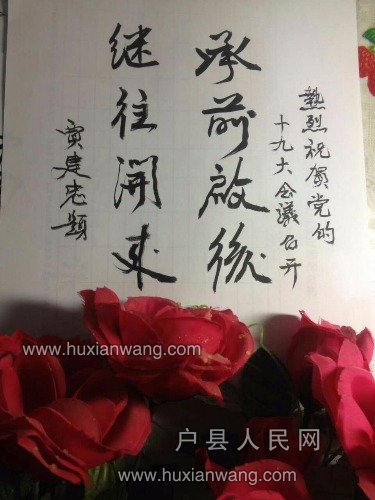 热烈祝贺党的
十九大会議召开
承前啟後
继往開来
贾建老题
www.huxianwang.com
户县人民网
www.huxianwang.com